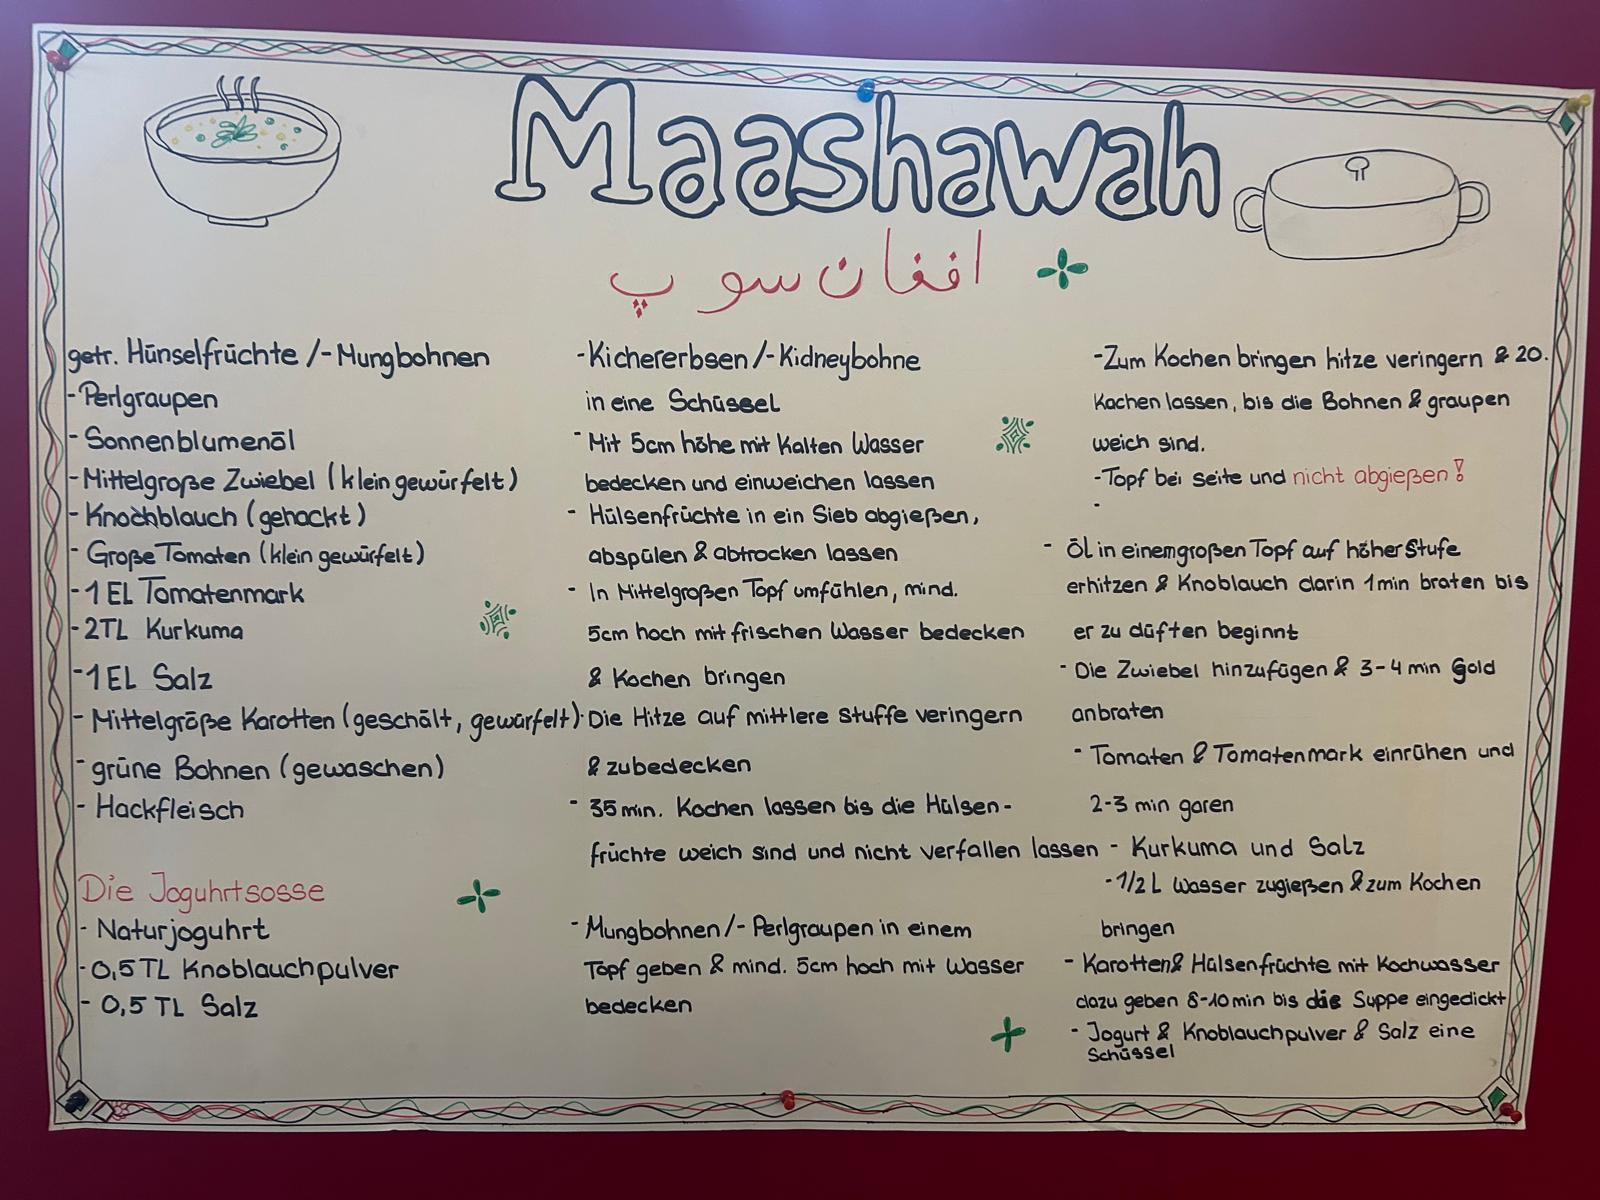 Maashawah
افغان سوپ
getr. Hünselfrüchte /- Mungbohnen
- Perlgraupen
- Sonnenblumenöl
- Mittelgroße Zwiebel (klein gewürfelt)
- Knochblauch (gehackt)
- Große Tomaten (klein gewürfelt)
- 1 EL Tomatenmark
- 2TL Kurkuma
- 1 EL Salz
- Mittelgröße Karotten (geschält, gewürfelt)
- grüne Bohnen (gewaschen)
- Hackfleisch
Die Joguhrtsosse
- Naturjoguhrt
- 0,5 TL Knoblauchpulver
- 0,5 TL Salz
- Kichererbsen /- Kidneybohne
in eine Schüssel
- Mit 5cm höhe mit Kalten Wasser
bedecken und einweichen lassen
- Hülsenfrüchte in ein Sieb abgießen,
abspülen & abtrocken lassen
- In Mittelgroßen Topf umfühlen, mind.
5cm hoch mit frischen Wasser bedecken
& Kochen bringen
- Die Hitze auf mittlere Stuffe veringern
& zubedecken
- 35 min. Kochen lassen bis die Hülsen-
früchte weich sind und nicht verfallen lassen
- Mungbohnen /- Perlgraupen in einem
Topf geben & mind. 5cm hoch mit Wasser
bedecken
- Zum Kochen bringen hitze veringern & 20.
Kochen lassen, bis die Bohnen & graupen
weich sind.
- Topf bei seite und nicht abgießen!
-
- Öl in einemgroßen Topf auf höher Stufe
erhitzen & Knoblauch darin 1min braten bis
er zu düften beginnt
- Die Zwiebel hinzufügen & 3-4 min Gold
anbraten
- Tomaten & Tomatenmark einrühen und
2-3 min garen
- Kurkuma und Salz
- 1/2 L Wasser zugießen & zum Kochen
bringen
- Karotten& Hülsenfrüchte mit Kochwasser
dazu geben 8-10 min bis die Suppe eingedickt
- Jogurt & Knoblauchpulver & Salz eine
Schüssel